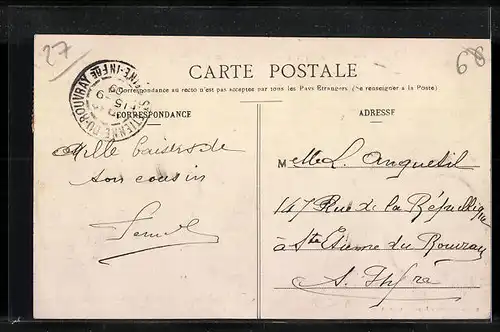 27
68
CARTE POSTALE
La Correspondance au recto n'est pas acceptée par tous les Pays Étrangers. (Se renseigner à la Poste)
CORRESPONDANCE
ADRESSE
ÉTIENNE-DU-ROUVRAY
Mille baisers de
son cousin
Melle L. Anquetil
147 Rue de la République
à Ste Etienne du Rouvray
S. Infre